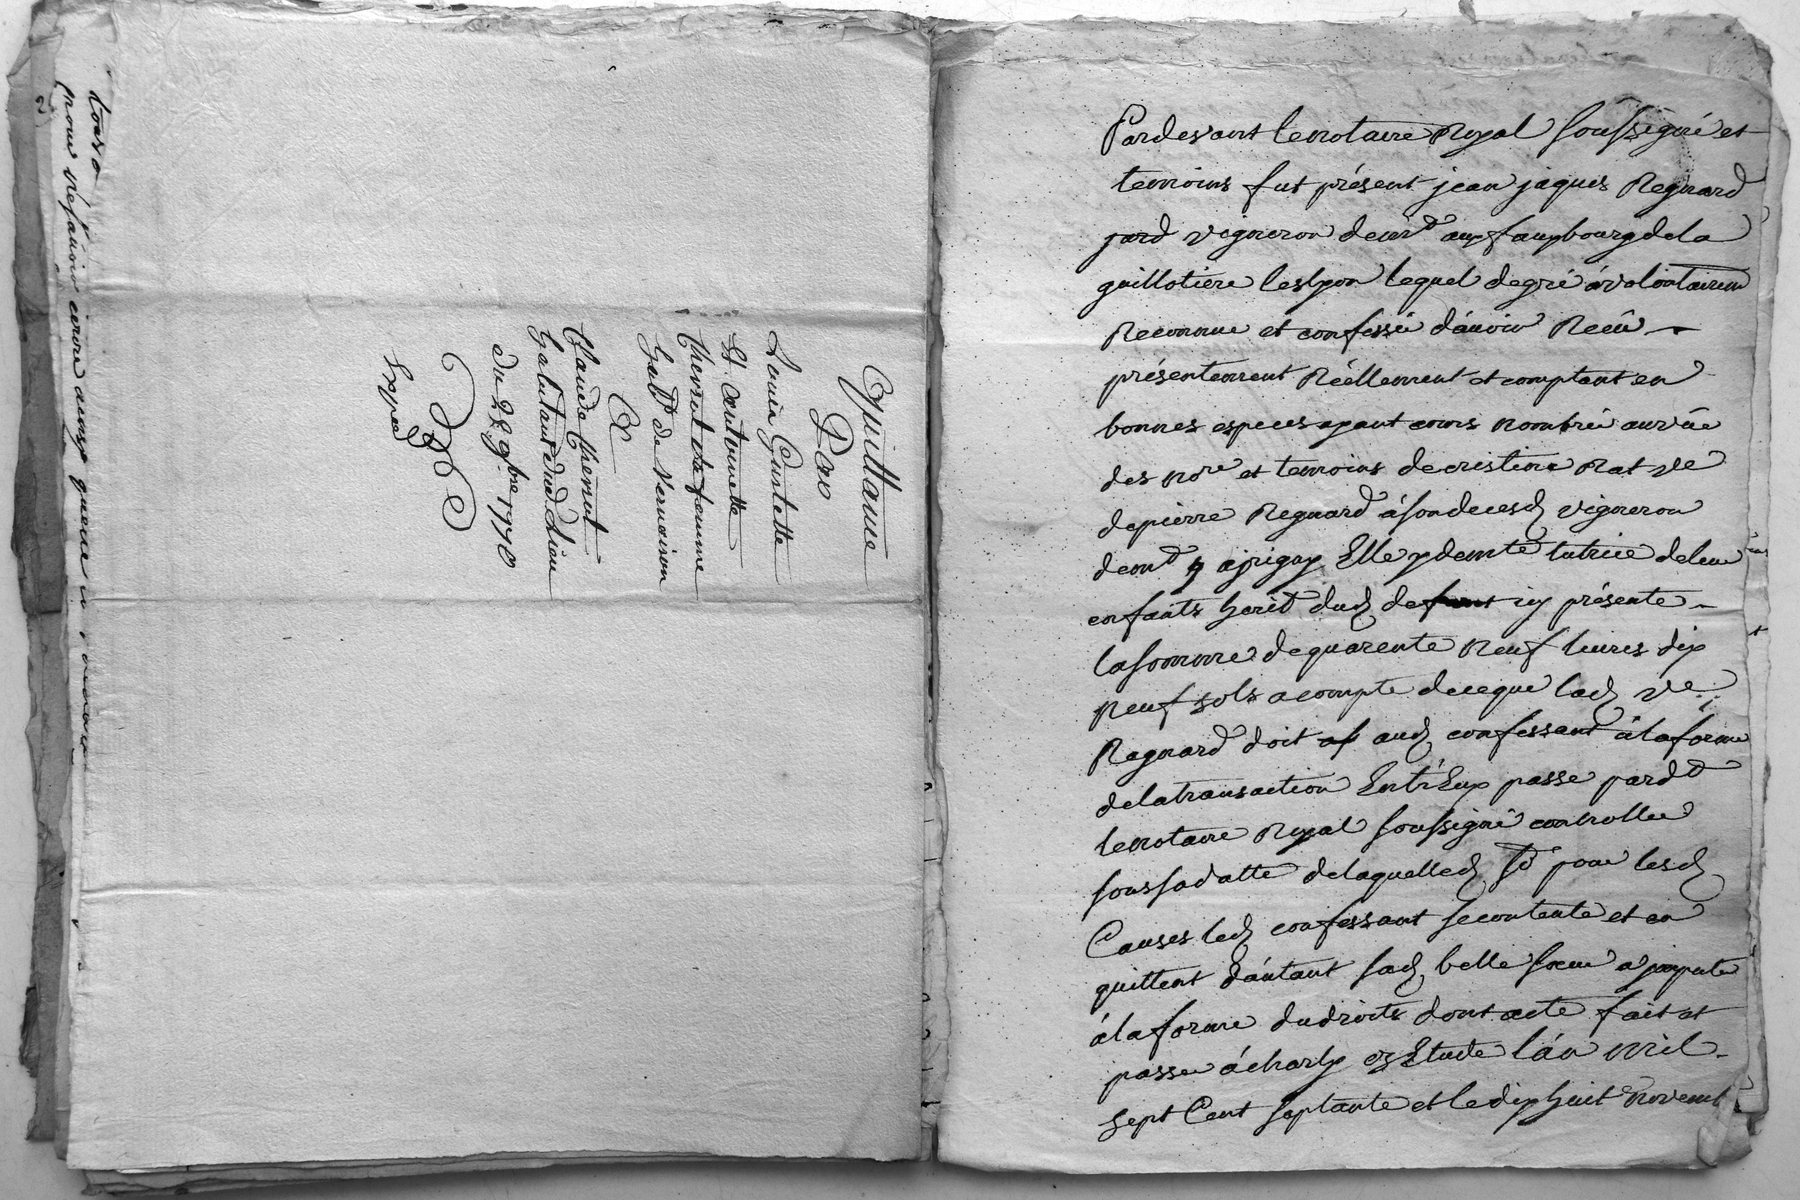 Quittance
Par
Louis Guintette
et. Antoinette
Chervet sa femme
hab.t de Vernaison
A
Claude Chervet
habitant dud. Lieu
du 22 9bre 1770
Expéd
Pardevant le notaire Royal soussigné et
temoins fut présent jean jaques Regnard
vigneron demt aux fauxbourg de la
guillotiere les lyon lequel de gré à volontairem
Reconnue et confessé d'avoir Recû
présentement Réellement et comptant en
bonnes especes ayant cours nombré au vûe
des nore et temoins de cristine Rat ve
de pierre Regnard à son deces vigneron
demt a jrigny Elle y demte tutrice de leur
enfants herit dud defunt icy présente
la somme de quarente neuf livres dix
neuf sols a compte de ce que lad ve
Regnard doit aud confessant à la forme
de la transaction Entr'Eux passe pard
le notaire Royal soussigné controllée
sous sa datte de laquelled sd pour lesd
Causes led confessant se contente et en
quittent d'autant sad belle soeur a jceptante
à la forme du droits dont acte fait et
passe à charly Etude l'an mil
sept Cent septante et le dix huit Novemb